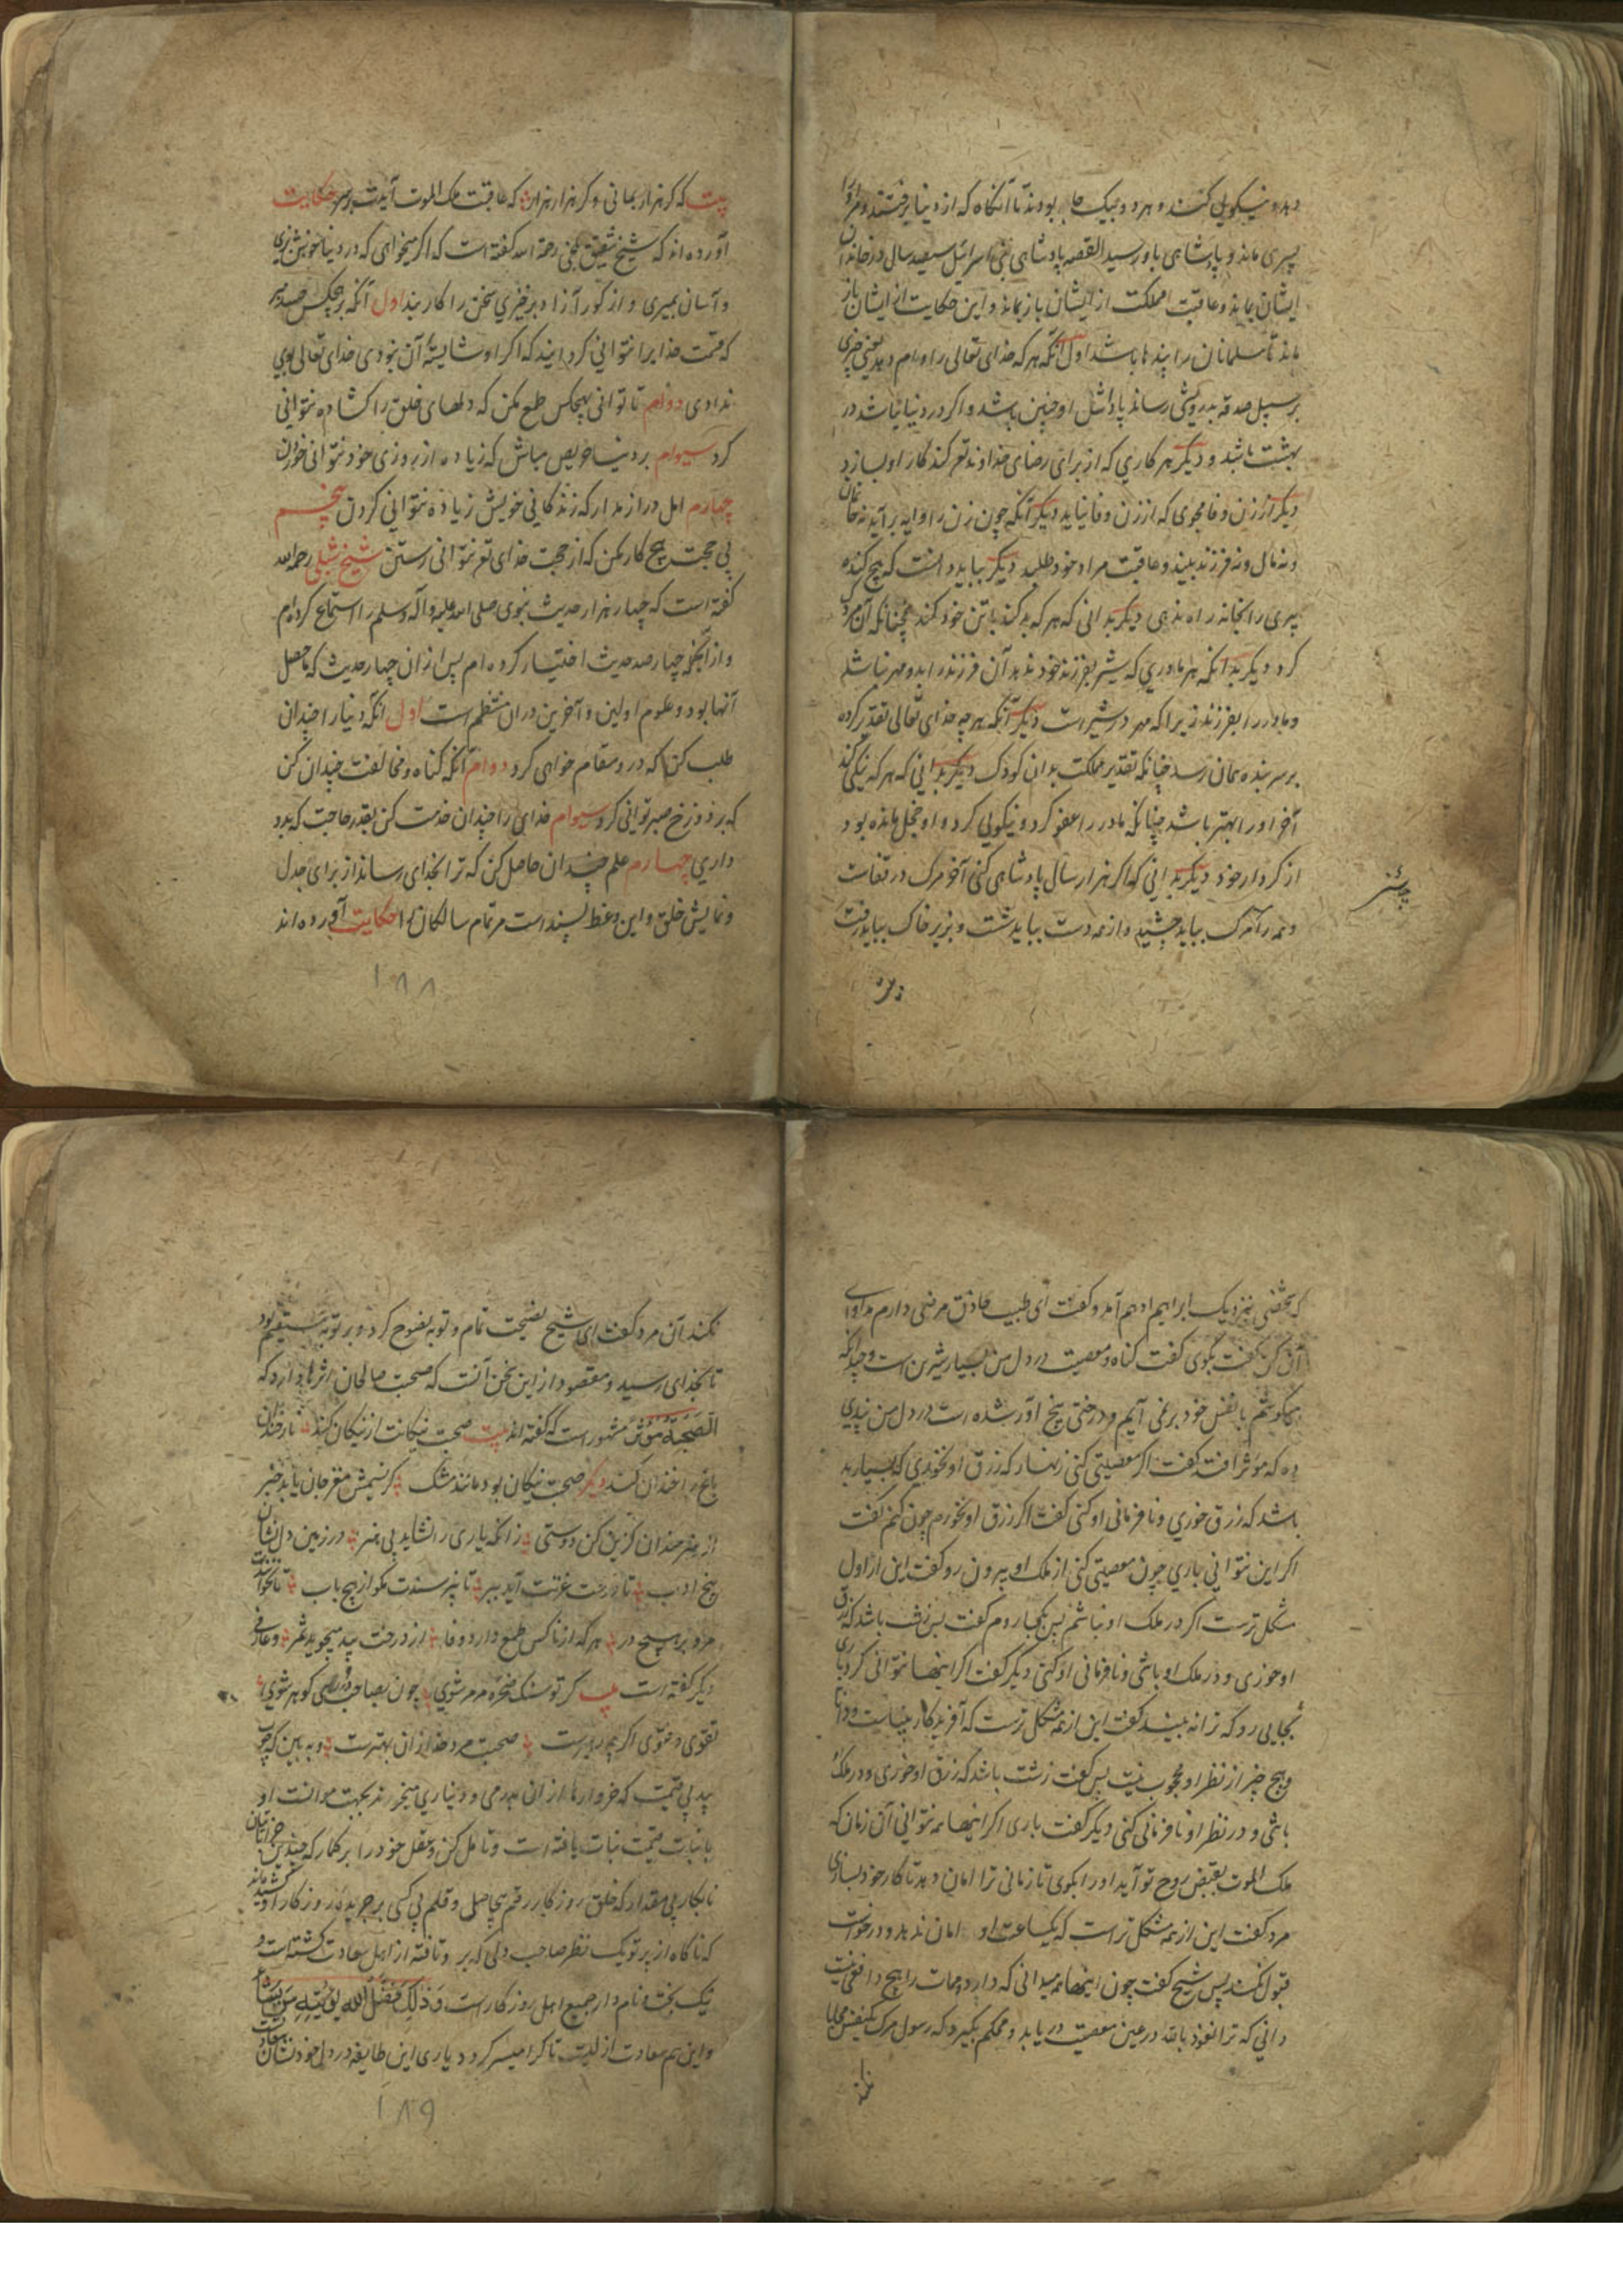 دهد و نیکویی کنند و هر دو بیک جا بودند تا آنگاه که از دنیا برفتند و مر او را
پسری ماند و پادشاهی باو رسید القصه پادشاهی بنی اسرائیل سیصد سال در خاندان
ایشان بماند و عاقبت مملکت از ایشان باز بماند و این حکایت از ایشان باز
ماند تا مسلمانان را پندها باشد اول آنکه هر که خدای تعالی را وام دهد یعنی چیزی
بر سبیل صدقه بدرویشی رساند پاداش او چنین باشد و اگر در دنیا نباشد در
بهشت باشد و دیگر هر کاری که از برای رضای خداوند تع کند کار او بسازد
دیگر از زن وفا مجوی که از زن وفا نیاید دیگر آنکه چون زن را وایه برآید نه خان
و نه مال و نه فرزند بیند و عاقبت مراد خود طلبد دیگر بباید دانست که هیچ کنده
پیری را بخانه راه ندهی دیگر بدانی که هر که بد کند با تن خود کند چنانکه آن مرد
کرد دیگر بدانکه هر مادری که شیر بفرزند خود ندهد آن فرزند را بدو مهر نباشد
و مادر را بفرزند زیرا که مهر در شیر است دیگر آنکه هر چه خدای تعالی تقدیر کرده
بر سر بنده همان رسد چنانکه تقدیر مملکت بدان کودک دیگر بدانی که هر که نیکی کند
آخر او را بهتر باشد چنانکه مادر را عفو کرد و نیکویی کرد و او خجل مانده بود
از کردار خود دیگر بدانی که اگر هزار سال پادشاهی کنی آخر مرگ در قفاست
و همه را مرگ بباید چشید و از همه دست بباید شست و بزیر خاک بباید رفت
بیت که گر هزار بمانی و گر هزار هزار که عاقبت ملک الموت آیدت بر سر حکایت
آورده اند که شیخ شقیق بلخی رحمة الله گفته است که اگر میخواهی که در دنیا خوش بزیی
و آسان بمیری و از گور آزاد برخیزی سخن را کار بند اول آنکه بر هیچکس حسد مبر
که قسمت خدایرا نتوانی گردانید که اگر او شایسته آن نبودی خدای تعالی بوی
ندادی دوام تا توانی بهیچکس طمع مکن که دلهای خلق را گشاده نتوانی
کرد سیوام بر دنیا حریص مباش که زیاده از روزی خود نتوانی خوردن
چهارم امل دراز مدار که زندگانی خویش زیاده نتوانی کردن پنجم
بی حجت هیچ کار مکن که از حجت خدای تع نتوانی رستن شیخ شبلی رحمه الله
گفته است که چهار هزار حدیث نبوی صلی الله علیه و آله و سلم را استماع کرده ام
و از آنجمله چهار صد حدیث اختیار کرده ام پس از آن چهار حدیث که ما حصل
آنها بود و علوم اولین و آخرین در آن منتظم است اول آنکه دنیا را چندان
طلب کن که در و مقام خواهی کرد دوام آنکه گناه و مخالفت چندان کن
که بر دوزخ صبر توانی کرد سیوام خدای را چندان خدمت کن بقدر حاجت که بدو
داری چهارم علم چندان حاصل کن که ترا بخدای رساند از برای جدل
و نمایش خلق و این وعظ بسنده است مر تمام سالکان را حکایت آورده اند
۱۸۸
که شخصی بنزدیک ابراهیم ادهم آمد و گفت ای طبیب حاذق مرضی دارم مداوای
آن کن گفت بگوی گفت گناه و معصیت در دل من بسیار شیرین است و چندانکه
میکوشم با نفس خود بر نمی آیم و درختی بیخ آور شده است در دل من پندی
ده که مؤثر افتد گفت اگر معصیتی کنی زنهار که رزق او نخوری که بسیار بد
باشد که رزق خوری و نافرمانی او کنی گفت اگر رزق او نخورم چون کنم گفت
اگر این نتوانی باری چون معصیتی کنی از ملک او بیرون رو گفت این از اول
مشکل ترست اگر در ملک او نباشم پس بکجا روم گفت پس زشت باشد که رزق
او خوری و در ملک او باشی و نافرمانی او کنی دیگر گفت اگر اینها نتوانی کرد باری
بجایی رو که ترا نه بیند گفت این از همه مشکل ترست که آفریدگار بیناست و دانا
و هیچ چیز از نظر او محجوب نیست پس گفت زشت باشد که رزق او خوری و در ملک
باشی و در نظر او نافرمانی کنی دیگر گفت باری اگر اینها همه نتوانی آن زمان که
ملک الموت بقبض روح تو آید او را بگوی تا زمانی ترا امان دهد تا کار خود بسازی
مرد گفت این از همه مشکل تر است که یکساعت او امان ندهد و درخواست
قبول نکند پس شیخ گفت چون اینها همه میدانی که دارد و ممات را هیچ دافعی نیست
دانی که ترا نعوذ بالله در عین معصیت دریابد و محکم بگیرد که رسول مرگ یکنفس محابا
نکند آن مرد گفت ای شیخ نصیحت تمام و توبه نصوح کرد و بر توبه مستقیم بود
تا بخدای رسید و مقصود ازین سخن آنست که صحبت صالحان اثرها دارد که
الصحبة مؤثر مشهور است که گفته اند بیت صحبت نیکانت از نیکان کند نار خندان
باغ را خندان کند دیگر صحبت نیکان بود مانند مشک کز نسیمش مغز جان یابد خبر
از هنرمندان گزین کن دوستی زانکه یاری را نشاید بی هنر در زمین دل نشان
بیخ ادب تا درخت عزتت آید ببر تا نپرسندت مگو از هیچ باب تا نخوانندت
مرو بر هیچ در هر که از ناکس طمع دارد وفا از درخت بید میجوید ثمر و عارفی
دیگر گفته است بیت گر تو سنگ صخره و مرمر شوی چون بصاحب دل رسی گوهر شوی
تقوی و فتوی اگر چه رهبرست صحبت مرد خدا زان بهترست و به بین که چوب
بید بی قیمت که خروارها از آن بدرمی و دیناری میخرند بجهت موانست او
با نبات قیمت نبات یافته است و تامل کن و عقل خود را برگمار که چندین خراباتیان
نابکار بی مقدار که خلق روزگار رقم بیحاصل و قلم بی کسی بر جریده روزگار او کشیده اند
که ناگاه از پرتو یک نظر صاحب دلی که بر و تافته از اهل سعادت گشته است و
نیک بخت و نام دار جمیع اهل روزگار است و ذلک فضل الله یؤتیه من یشاء
و این هم سعادت ازلیست تا کرا میسر گردد یاری این طایفه در دل خود نشان
۱۸۹